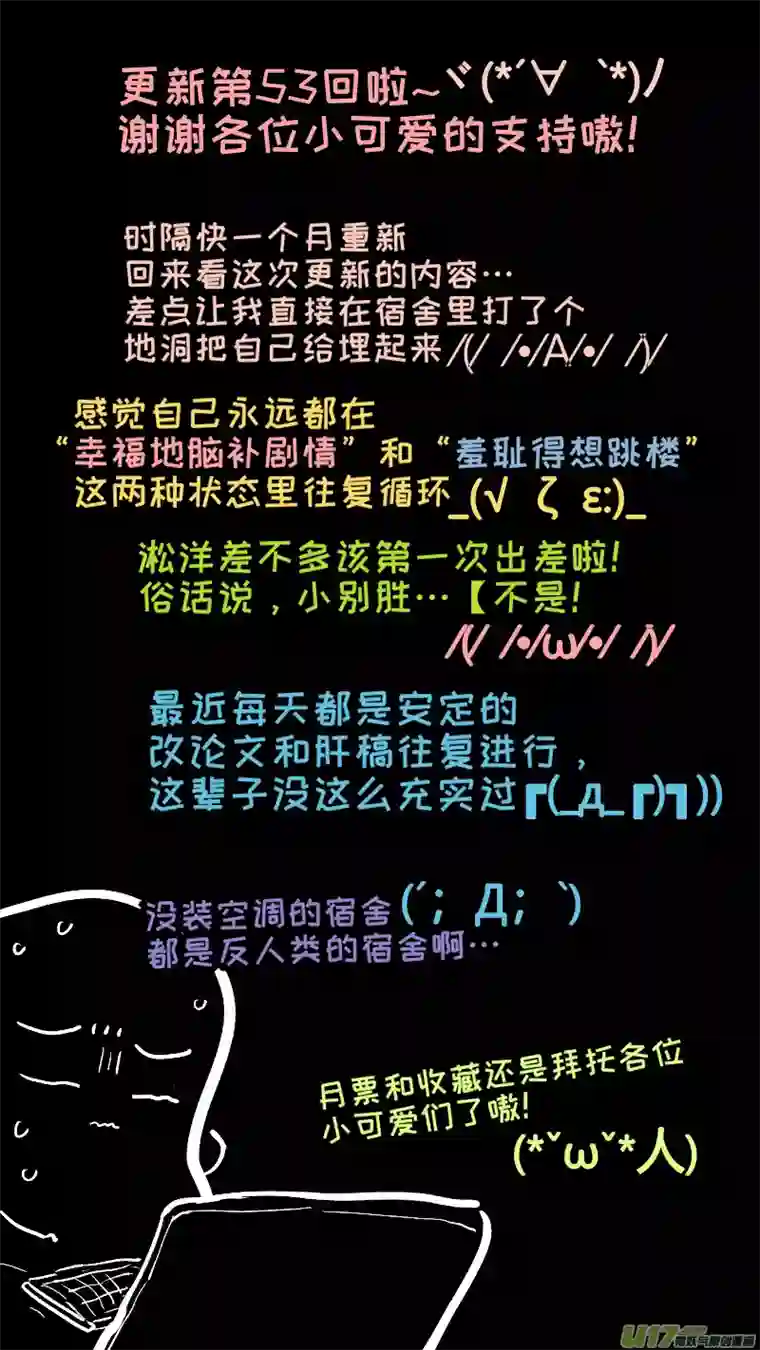 更新第53回啦~ヾ(*´∀｀*)ﾉ
谢谢各位小可爱的支持嗷!
时隔快一个月重新
回来看这次更新的内容…
差点让我直接在宿舍里打了个
地洞把自己给埋起来/(/ /•/A/•/ /)/
感觉自己永远都在
“幸福地脑补剧情”和“羞耻得想跳楼”
这两种状态里往复循环_(√ ζ ε:)_
淞洋差不多该第一次出差啦!
俗话说，小别胜…【不是!
/(/ /•/ω/•/ /)/
最近每天都是安定的
改论文和肝稿往复进行，
这辈子没这么充实过┏(_д_┏)┓))
没装空调的宿舍(´；Д；｀)
都是反人类的宿舍啊…
月票和收藏还是拜托各位
小可爱们了嗷!
(*˘ω˘*人)
U17 有妖气原创漫画